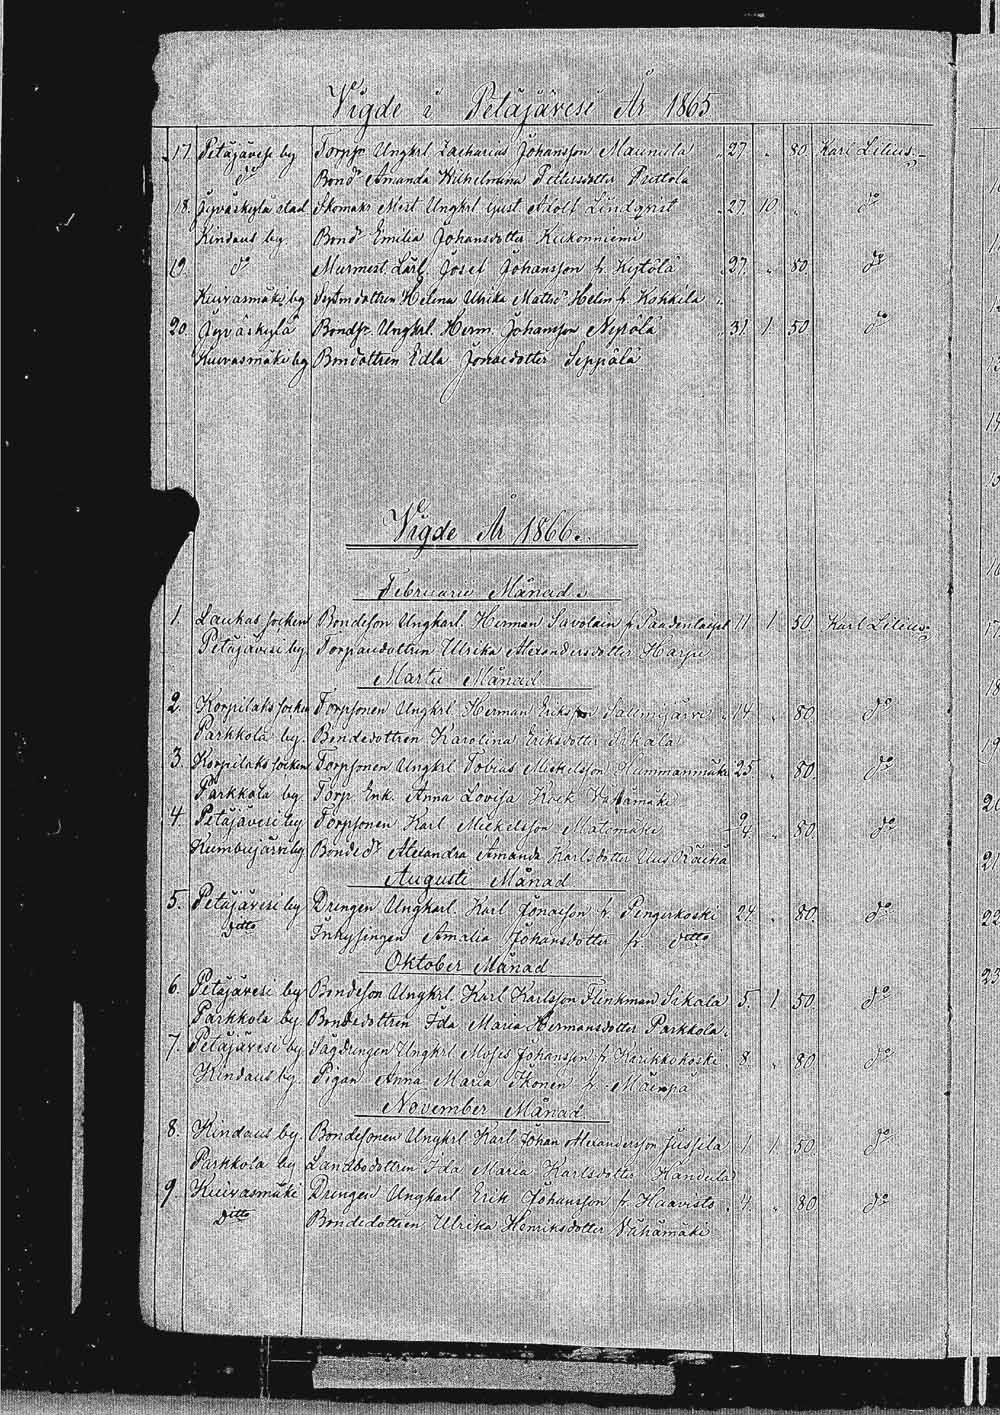 Vigde i Petäjävesi År 1865
17. Petäjävesi by Torpsn Ungkrl Zacharias Johansson Maunula 27. „ 80. Karl Lilius
do Bondr Amanda Wilhelmina Pettersdotter Puttola
18. Jyväskylä stad Skomak. Mest Ungkrl Gust. Adolf Lindqvist 27. 10 „ do
Kindaus by Bondr Emilia Johansdotter Kukonniemi
19. do Murmest. Lärl. Josef Johansson fr. Kytölä 27. „ 80. do
Kuivasmäki by Helena Ulrika Matts Helin fr. Kokkila
20 Jyväskylä Bondsn Ungkrl. Herm. Johansson Nyrölä 31. 1. 50 do
Kuivasmäki by Bonddottren Edla Jonaedotter Seppälä
Vigde År 1866.
Februarii Månad.
1. Laukas socken Bondeson Ungkarl. Herman Savolain fr 11 1. 50. Karl Lilius
Petäjävesi by Torparedottren Ulrika Alexandersdotter Harju
Martii Månad
2. Korpilaks socken Torpsonen Ungkrl Herman Eriksson Sallmijärvi 14. „ 80. do
Parkkola by. Bondedottren Karolina Eriksdotter Sikala
3. Korpilaks socken Torpsonen Ungkrl Tobias Mickelsson Hummanmäki 25 „ 80. do
Parkkola by Torp. Enk. Anna Lovisa Kock
4. Petäjävesi by Torpsonen Karl Mickelsson Matomäki „ 80. do
Kumbujärvi by Bonded. Alexandra Amanda Karlsdotter
Augusti Månad
5. Petäjävesi by Drengen Ungkarl. Karl Jonaeson fr. Pengerkoski 24. „ 80. do
Ditto Inhysingen Amalia Johansdotter fr. ditto
Oktober Månad
6. Petäjävesi by Bondeson Ungkrl. Karl Karlsson Flinkman Sikala 5. 1. 50. do
Parkkola by Bondedottren Ida Maria Hermansdotter Parkkola
7. Petäjävesi by. Sagdrengen Ungkrl Moses Johansson fr. Karikkokoski 8. „ 80 do
Kindaus by. Pigan Anna Maria Ikonen fr. Mäenpä
November Månad.
8. Kindaus by. Bondesonen Ungkrl Karl Johan Alexandersson Jussila 1 1. 50. do
Parkkola by Landbodottren Ida Maria Karlsdotter Handula
9. Kuivasmäki Drengen Ungkarl Erik Johansson fr. Haavisto 4. „ 80 do
Ditto Bondedottren Ulrika Henriksdotter Wähämäki